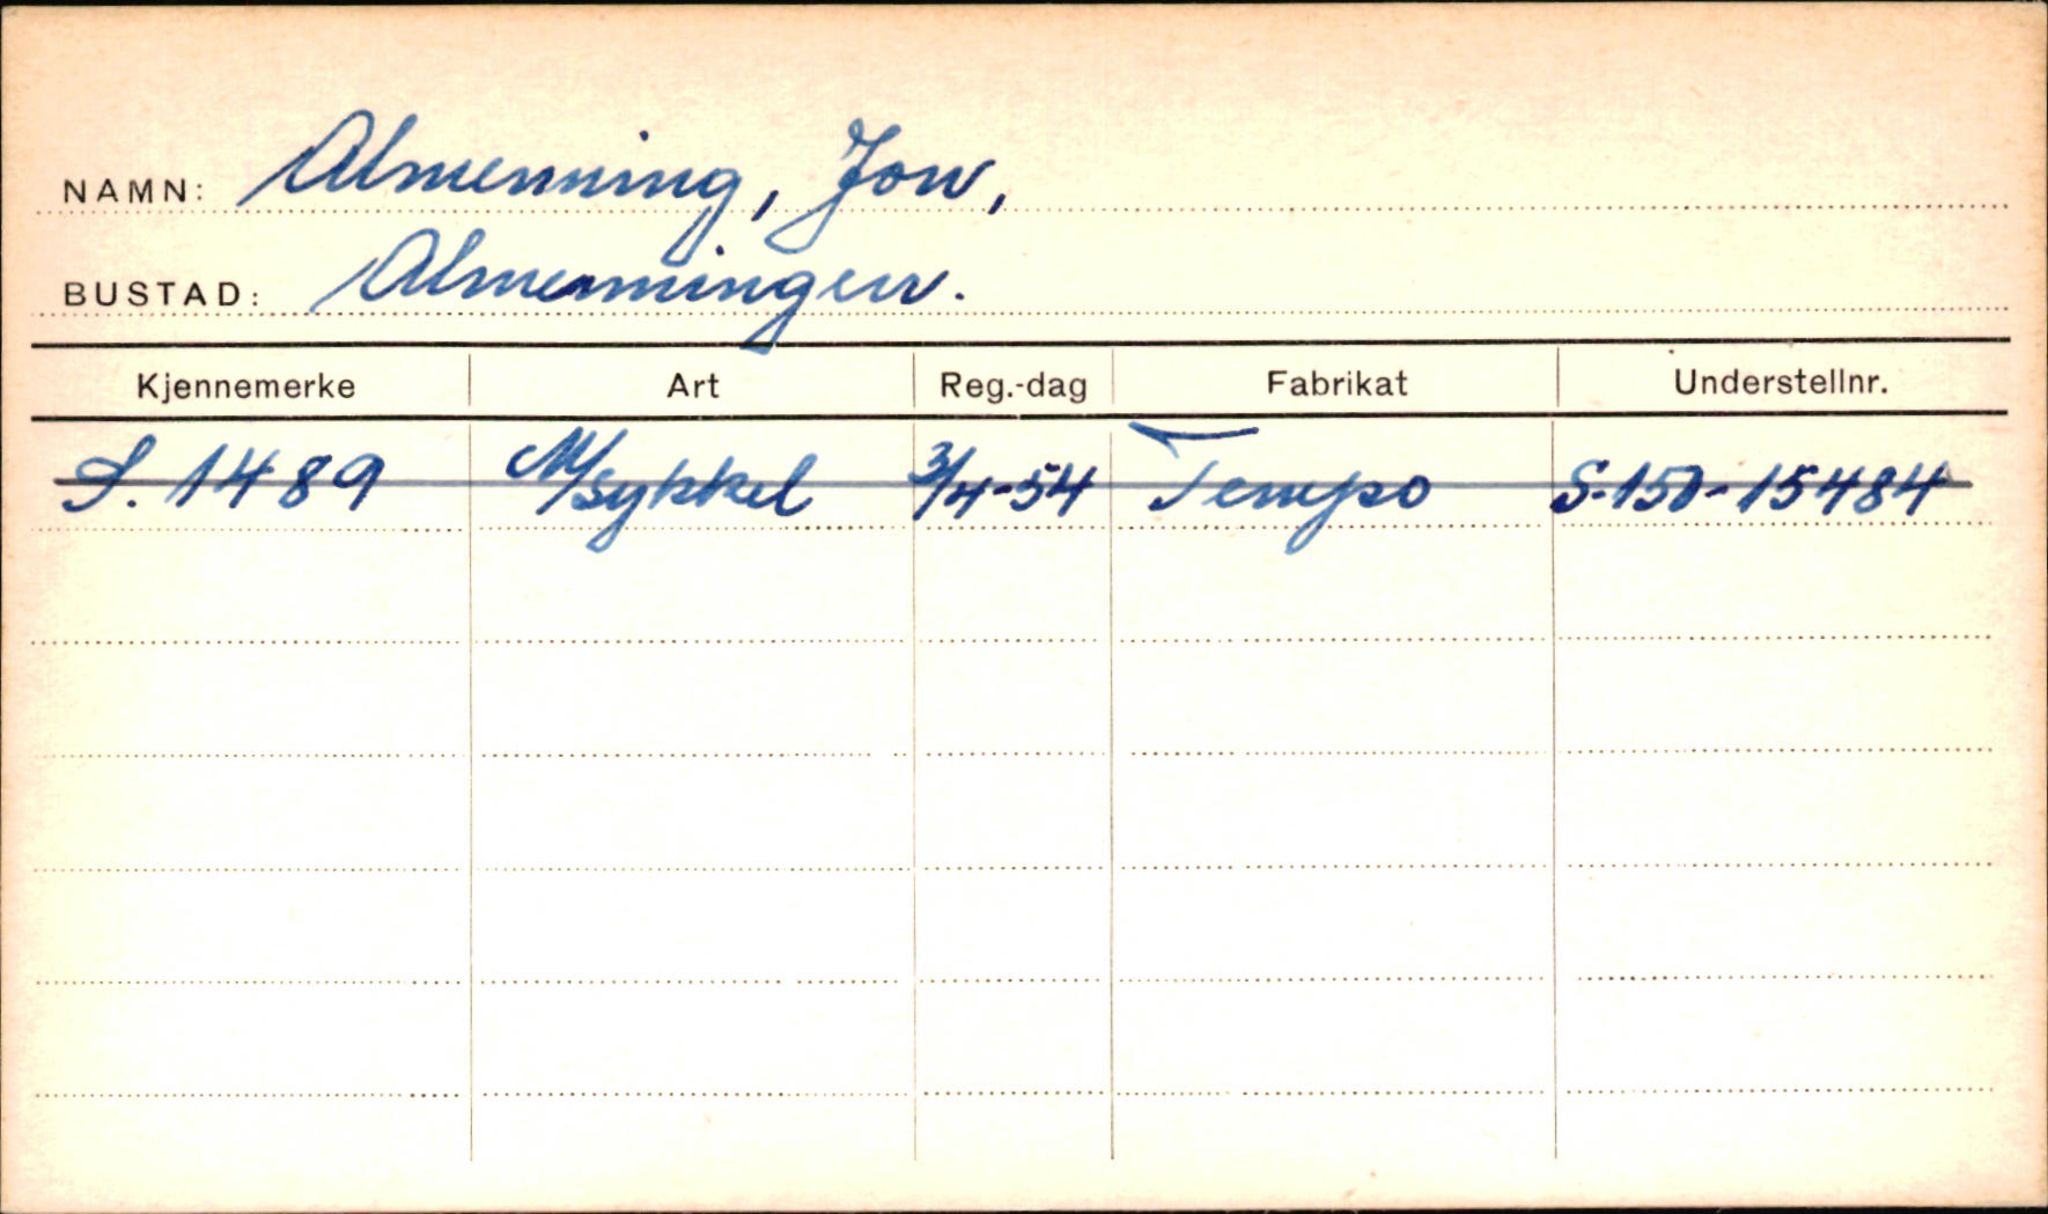 NAMN: Almenning, Jon,
BUSTAD: Almenningen.
Kjennemerke Art Reg.-dag Fabrikat Understellnr.
S. 1489 M/sykkel 3/4-54 Tempo S-150-15484